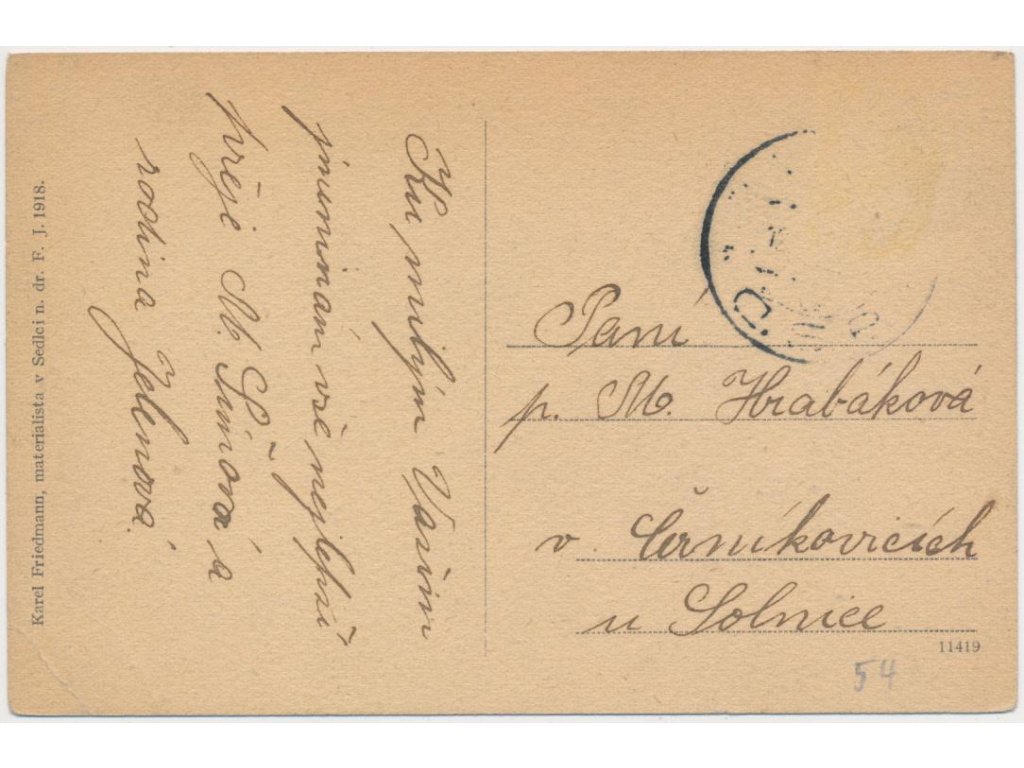 Karel Friedmann, materialista v Sedlci n. dr. F. J. 1918.
Ku milým Vašim
jmeninám vše nejlepší
přeje M. Šímová a
rodina Jelenová.
Paní
p. M. Hrabáková
v Černíkovicích
u Solnice
11419
54